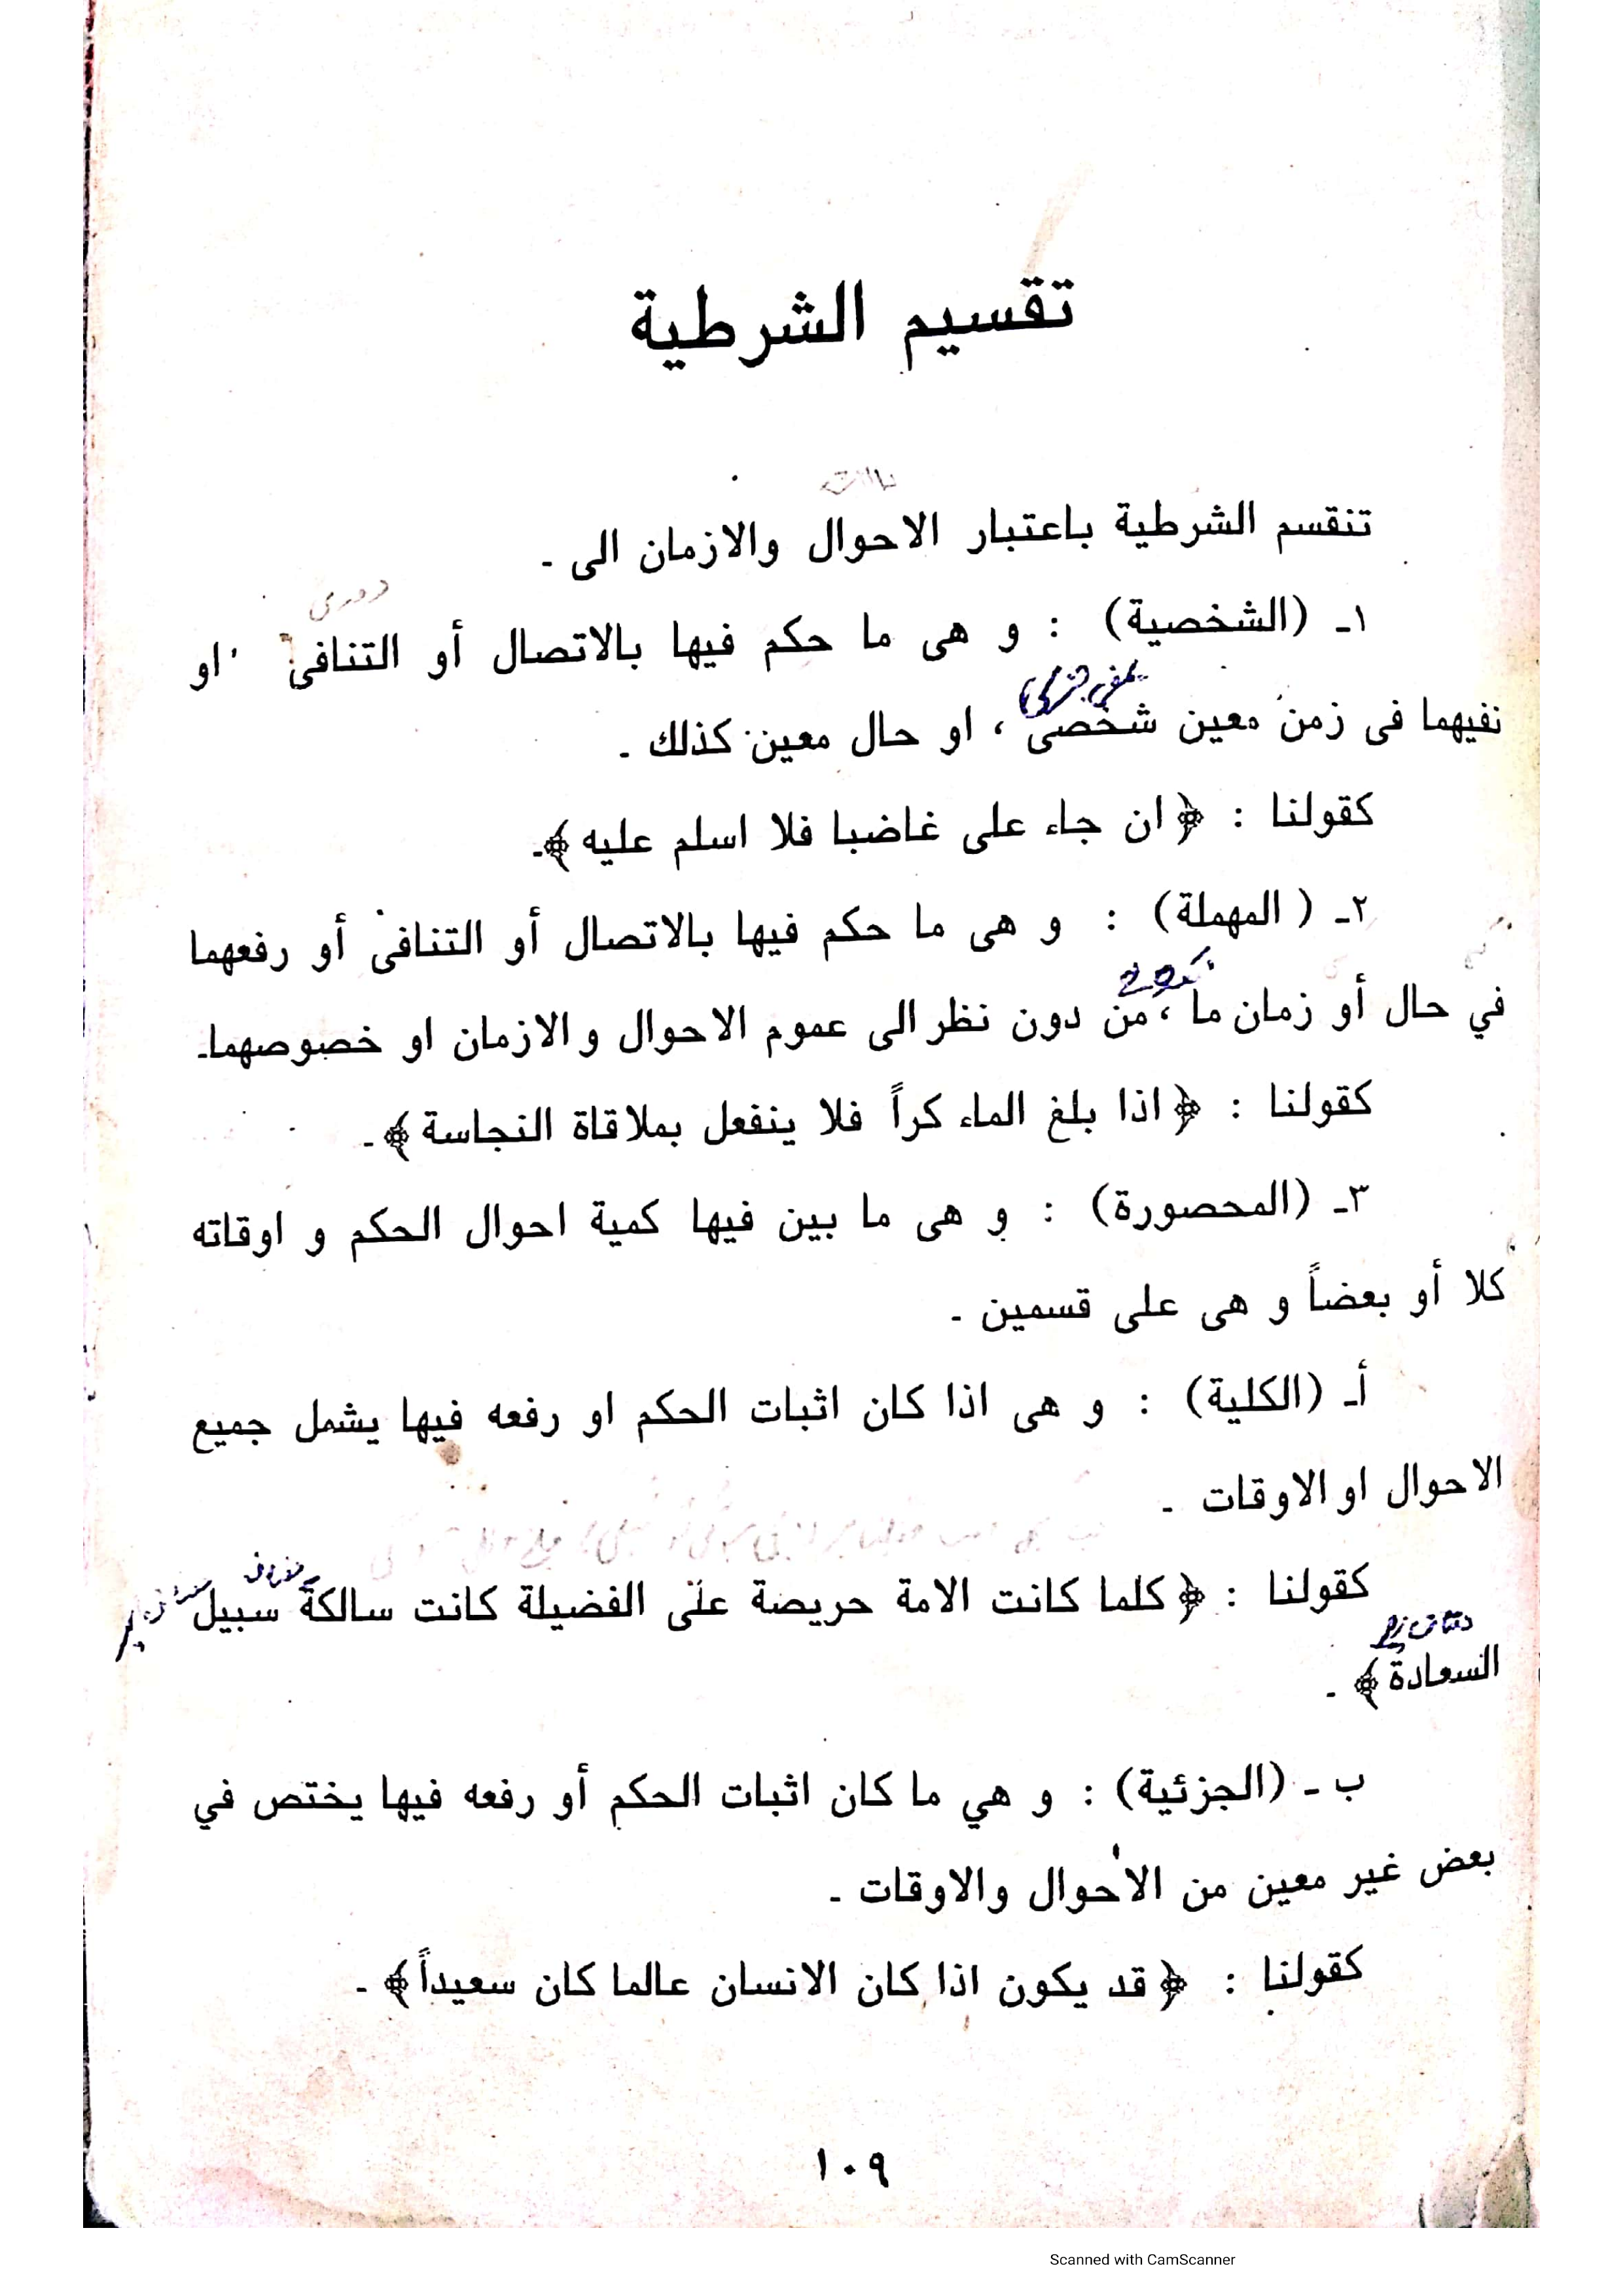 تقسيم الشرطية
تنقسم الشرطية باعتبار الاحوال والازمان الى ـ
١ـ (الشخصية) : و هى ما حكم فيها بالاتصال أو التنافى او
نفيهما فى زمن معين شخصى ، او حال معين كذلك ـ
كقولنا : ﴿ان جاء على غاضبا فلا اسلم عليه﴾ـ
٢ـ ( المهملة) : و هى ما حكم فيها بالاتصال أو التنافى أو رفعهما
في حال أو زمان ما ، من دون نظر الى عموم الاحوال و الازمان او خصوصهماـ
كقولنا : ﴿اذا بلغ الماء كراً فلا ينفعل بملاقاة النجاسة﴾ـ
٣ـ (المحصورة) : و هى ما بين فيها كمية احوال الحكم و اوقاته
كلا أو بعضاً و هى على قسمين ـ
أـ (الكلية) : و هى اذا كان اثبات الحكم او رفعه فيها يشمل جميع
الاحوال او الاوقات ـ
كقولنا : ﴿كلما كانت الامة حريصة على الفضيلة كانت سالكة سبيل
السعادة﴾ ـ
ب ـ (الجزئية) : و هي ما كان اثبات الحكم أو رفعه فيها يختص في
بعض غير معين من الاحوال والاوقات ـ
كقولنا : ﴿قد يكون اذا كان الانسان عالما كان سعيداً﴾ ـ
١٠٩
Scanned with CamScanner